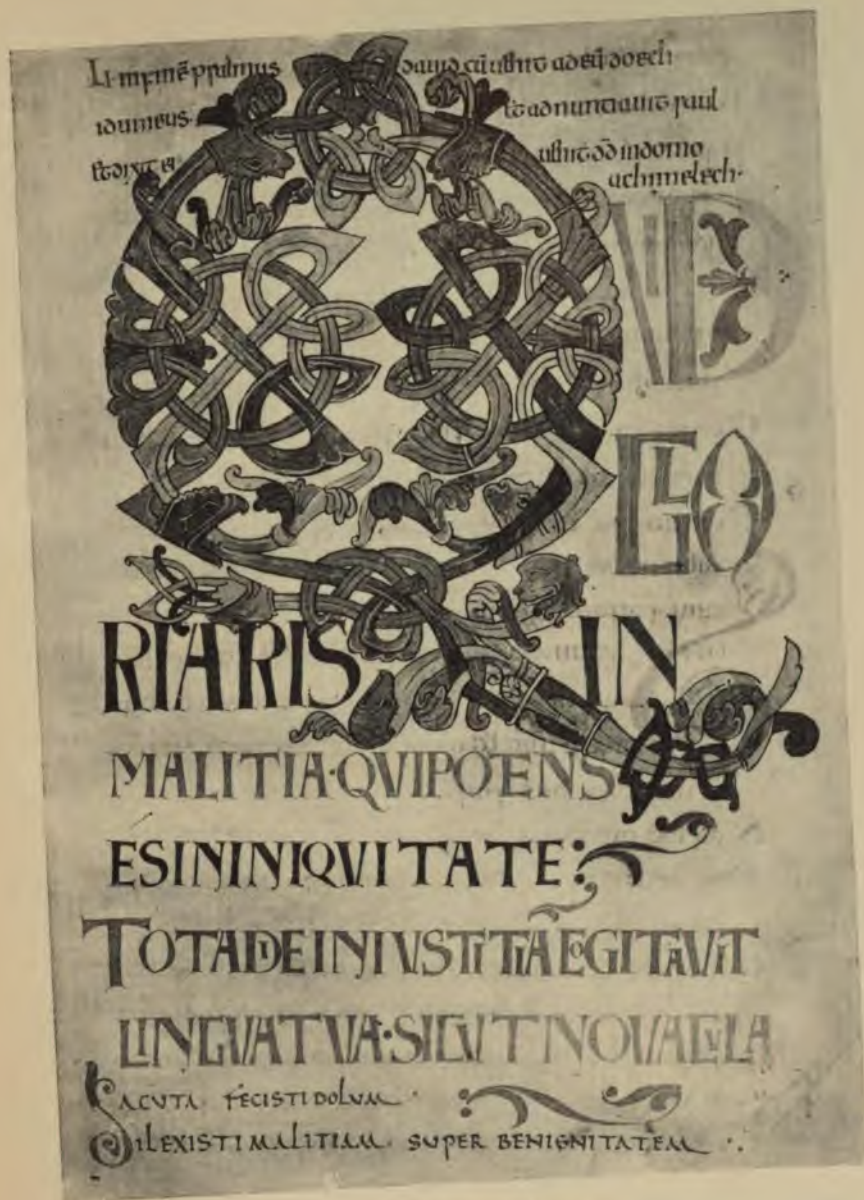 LI In finē psalmus dauid cū uenit ad eū doech
idumeus. Et adnuntiauit saul
Et dixit ei uenit dd in domo
achimelech·
QVID
GLO
RIARIS IN
MALITIA·QVIPOTENS
ESININIQVITATE:
TOTADIEINIVSTITIĀ COGITAVIT
LINGVATVA·SICUTNOVACULA
ACVTA FECISTI DOLVM·
DILEXISTI MALITIAM SUPER BENIGNITATEM